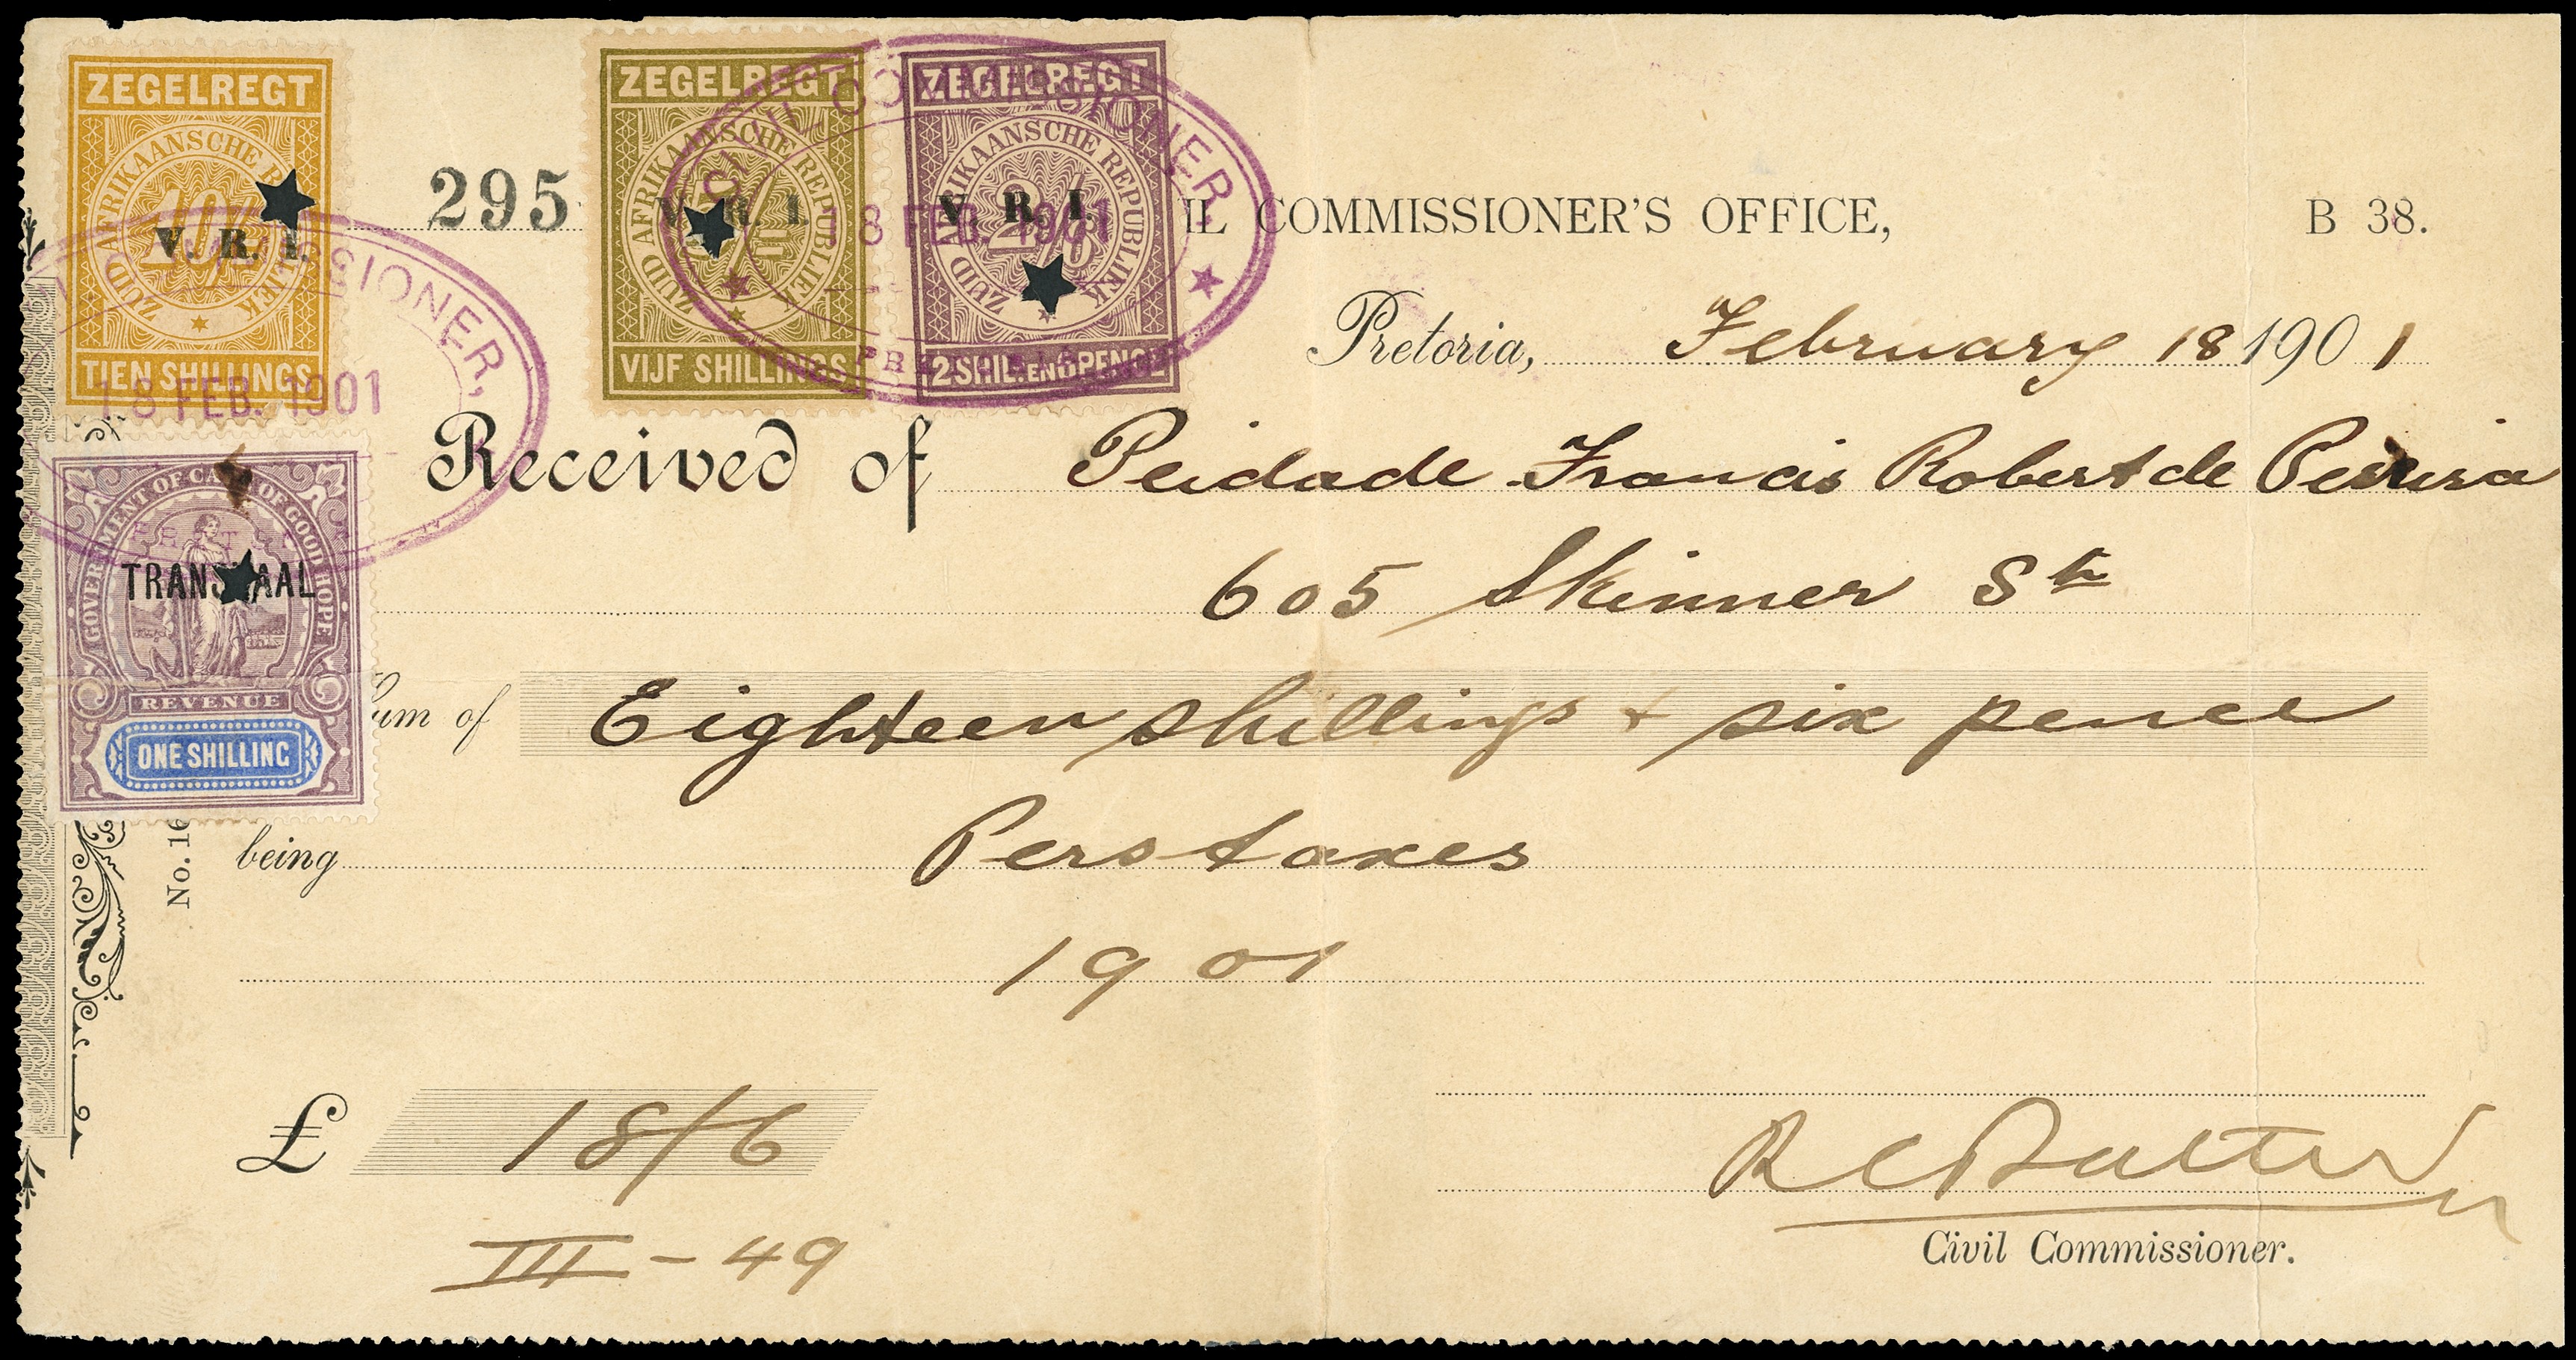 ZEGELREGT
ZUID AFRIKAANSCHE R
10/
V. R. I.
TIEN SHILLINGS
ZEGELREGT
ZUID AFRIKAANSCHE REPUBLIEK
V. R. I.
VIJF SHILLINGS
ZEGELREGT
ZUID AFRIKAANSCHE REPUBLIEK
2/6
V. R. I.
2 SHIL. EN 6 PENCE
CIVIL COMMISSIONER,
18 FEB. 1901
PRETORIA
MMISSIONER,
18 FEB. 1901
295
IL COMMISSIONER'S OFFICE,
B 38.
Pretoria, February 18 1901
Received of Peidade Francis Robert de Pereira
605 Skinner St
GOVERNMENT OF CA DE GOOD HOPE
TRANSVAAL
REVENUE
ONE SHILLING
um of Eighteen shillings + six pence
No. 16
being Pers taxes
1901
£ 18/6
III - 49
Civil Commissioner.